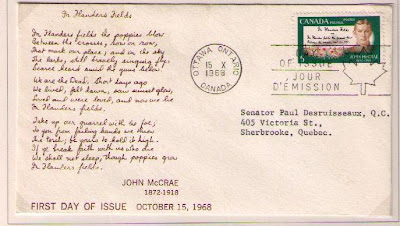 In Flanders Fields
In Flanders fields the poppies blow
Between the crosses, row on row,
That mark our place; and in the sky
The larks, still bravely singing, fly
Scarce heard amid the guns below.
We are the Dead. Short days ago
We lived, felt dawn, saw sunset glow,
Loved and were loved, and now we lie
In Flanders fields.
Take up our quarrel with the foe;
To you from failing hands we throw
The torch; be yours to hold it high.
If ye break faith with us who die
We shall not sleep, though poppies grow
In Flanders fields.
JOHN McCRAE
1872-1918
FIRST DAY OF ISSUE OCTOBER 15, 1968
OTTAWA, ONTARIO
15 X
1968
CANADA
CANADA
In Flanders Fields
JOHN McCRAE
5
OF ISSUE
JOUR
D'EMISSION
Senator Paul Desruisseaux, Q.C.
405 Victoria St.,
Sherbrooke, Quebec.